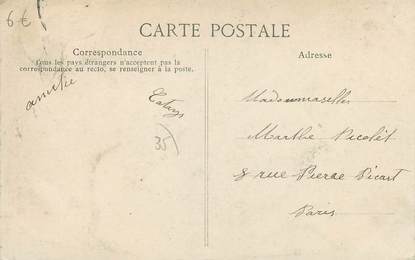 6€
CARTE POSTALE
Correspondance
Tous les pays étrangers n'acceptent pas la
correspondance au recto, se renseigner à la poste.
Adresse
amitié
35
Mademoiselle
Marthe Picolet
8 rue Pierre Picart
Paris